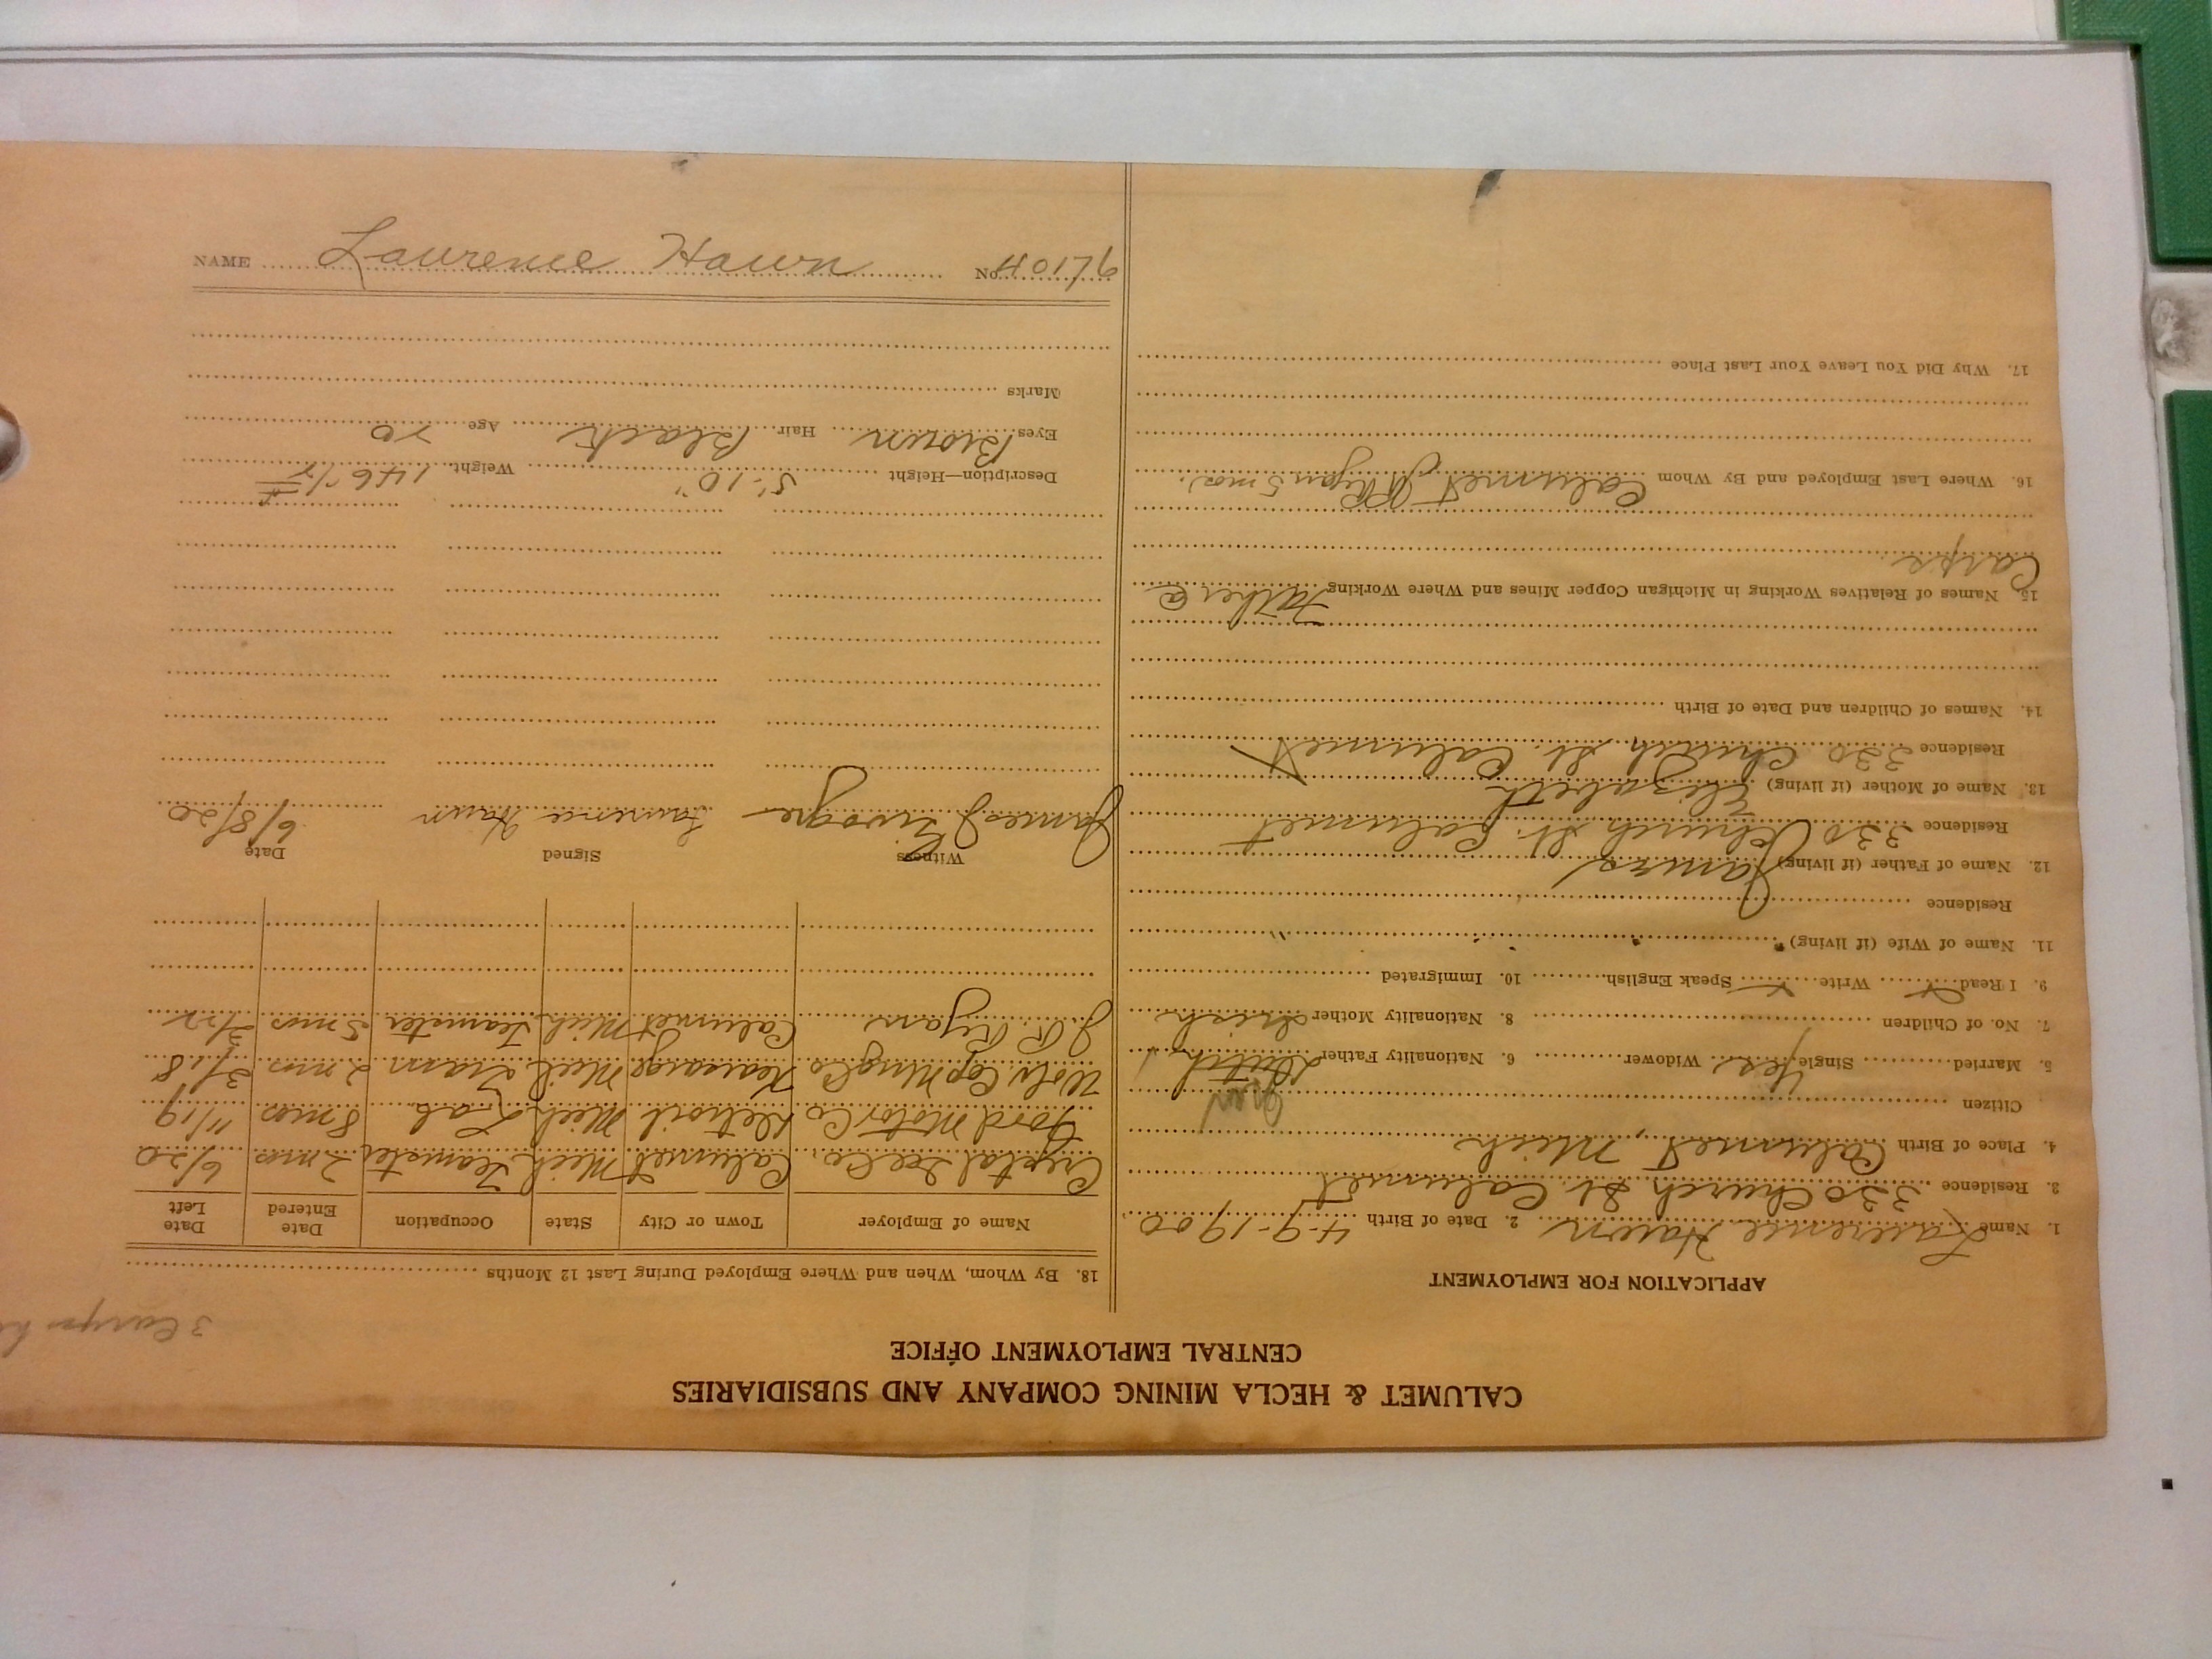 CALUMET & HECLA MINING COMPANY AND SUBSIDIARIES
CENTRAL EMPLOYMENT OFFICE
APPLICATION FOR EMPLOYMENT
1. Name Laurence Hawn 2. Date of Birth 4-9-1900
3. Residence 330 Church St. Calumet
4. Place of Birth Calumet, Mich
Citizen
5. Married Single Yes Widower 6. Nationality Father Dutch
7. No. of Children 8. Nationality Mother Irish
9. I Read Write Speak English 10. Immigrated
11. Name of Wife (if living)
Residence
12. Name of Father (if living) James
Residence 330 Church St. Calumet
13. Name of Mother (if living) Elizabeth
Residence 330 Church St. Calumet
14. Names of Children and Date of Birth
15. Names of Relatives Working in Michigan Copper Mines and Where Working Father @
Carps.
16. Where Last Employed and By Whom Calumet, J.R. Ryan 5 mos.
17. Why Did You Leave Your Last Place
3
18. By Whom, When and Where Employed During Last 12 Months
Name of Employer Town or City State Occupation Date Entered Date Left
Crystal Ice Co. Calumet Mich Teamster 2 mos 6/20
Ford Motor Co Detroit Mich Lab. 8 mos 11/19
Wolv. Cop Ming Co Kearsarge Mich Tram 2 mos 3/18
J.R. Ryan Calumet Mich Teamster 5 mos
Witness Signed Date
James J. Laurence Hawn 6/8/20
Description—Height 5'-10" Weight 146 1/2 #
Eyes Brown Hair Black Age 20
Marks
NAME Laurence Hawn No. 40176